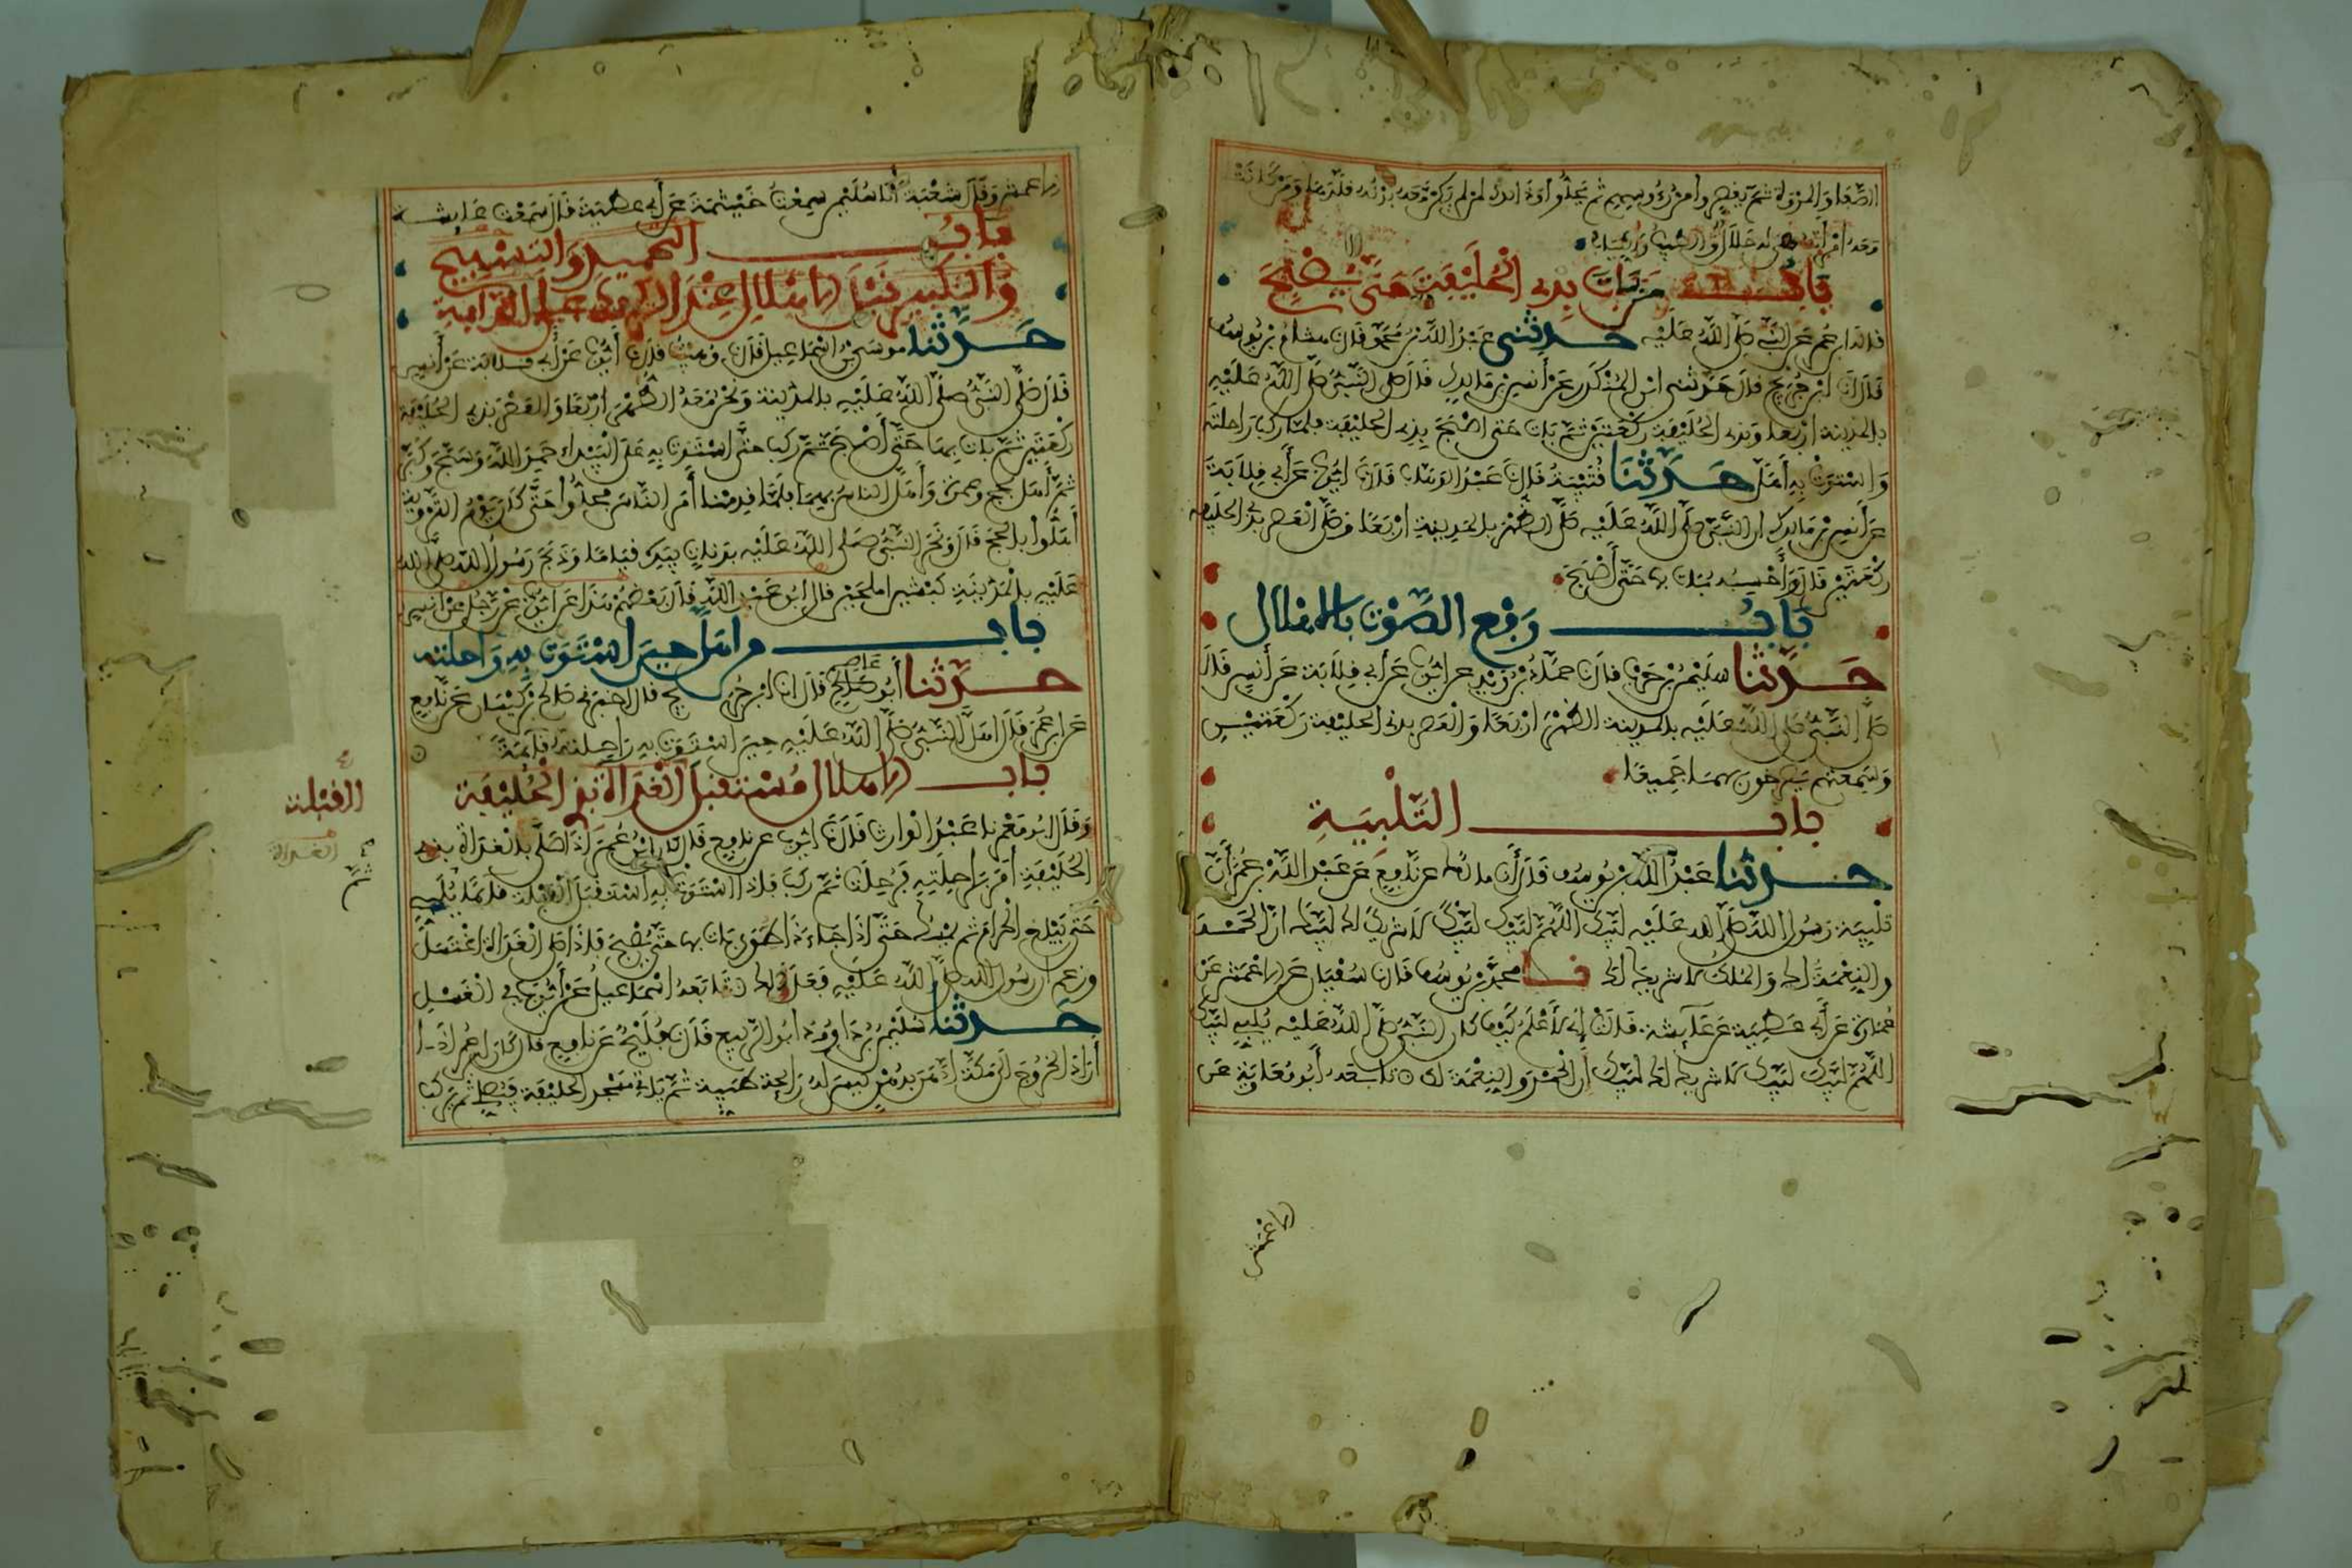 الصفا والمروة ثم يقصروا من رءوسهم ثم يحلوا وذلك لمن لم يكن معه بدنة قلدها ومن كانت
معه امرأته فهي له حلال والطيب والثياب
باب من بات بذي الحليفة حتى يصبح
قاله ابن عمر عن النبي صلى الله عليه حدثني عبد الله بن محمد قال نا هشام بن يوسف
قال انا ابن جريج قال حدثني ابن المنكدر عن أنس بن مالك قال صلى النبي صلى الله عليه
بالمدينة اربعا وبذي الحليفة ركعتين ثم بات حتى اصبح بذي الحليفة فلما ركب راحلته
واستوت به أهل حدثنا قتيبة قال نا عبد الوهاب قال نا ايوب عن أبي قلابة
عن أنس بن مالك ان النبي صلى الله عليه صلى الظهر بالمدينة اربعا وصلى العصر بذي الحليفة
ركعتين قال وأحسبه بات بها حتى أصبح
باب رفع الصوت بالاهلال
حدثنا سليمن بن حرب قال نا حماد بن زيد عن ايوب عن أبي قلابة عن أنس قال
صلى النبي صلى الله عليه بالمدينة الظهر اربعا والعصر بذي الحليفة ركعتين
وسمعتهم يصرخون بهما جميعا
باب التلبية
حدثنا عبد الله بن يوسف قال أنا مالك عن نافع عن عبد الله بن عمر أن
تلبية رسول الله صلى الله عليه لبيك اللهم لبيك لبيك لا شريك لك لبيك ان الحمد
والنعمة لك والملك لا شريك لك نا محمد بن يوسف قال نا سفيان عن الاعمش عن
عمارة عن أبي عطية عن عائشة قالت إني لأعلم كيف كان النبي صلى الله عليه يلبي لبيك
اللهم لبيك لبيك لا شريك لك لبيك إن الحمد والنعمة لك تابعه أبو معاوية عن
الاعمش
الاعمش وقال شعبة أنا سليمن سمعت خيثمة عن أبي عطية قال سمعت عايشة
باب التحميد والتسبيح
والتكبير قبل الاهلال عند الركوب على الدابة
حدثنا موسى بن اسماعيل قال نا وهيب قال نا أيوب عن أبي قلابة عن أنس
قال صلى النبي صلى الله عليه بالمدينة ونحن معه الظهر اربعا والعصر بذي الحليفة
ركعتين ثم بات بها حتى أصبح ثم ركب حتى استوت به على البيداء حمد الله وسبح وكبر
ثم أهل بحج وعمرة وأهل الناس بهما فلما قدمنا أمر الناس فحلوا حتى كان يوم التروية
أهلوا بالحج قال ونحر النبي صلى الله عليه بدنات بيده قياما وذبح رسول الله صلى الله
عليه بالمدينة كبشين املحين قال ابو عبد الله قال بعضهم هذا عن ايوب عن رجل عن انس
باب من اهل حين استوت به راحلته
حدثنا أبو عاصم قال انا ابن جريج قال اخبرني صالح بن كيسان عن نافع
عن ابن عمر قال اهل النبي صلى الله عليه حين استوت به راحلته قائمة
باب الاهلال مستقبل الغداة بذي الحليفة
القبلة
الغداة
وقال ابو معمر نا عبد الوارث قال نا ايوب عن نافع قال كان ابن عمر إذا صلى بالغداة بذي
الحليفة أمر براحلته فرحلت ثم ركب فإذا استوت به استقبل القبلة قائما ثم يلبي
حتى يبلغ الحرم ثم يمسك حتى إذا جاء ذا طوى بات بها حتى يصبح فإذا صلى الغداة اغتسل
وزعم ان رسول الله صلى الله عليه فعل ذلك تابعه اسماعيل عن أيوب في الغسل
حدثنا سليمن بن داود ابو الربيع قال نا فليح عن نافع قال كان ابن عمر اذا
أراد الخروج الى مكة ادهن بدهن ليس له رايحة طيبة ثم ياتي مسجد الحليفة فيصلي ثم يركب